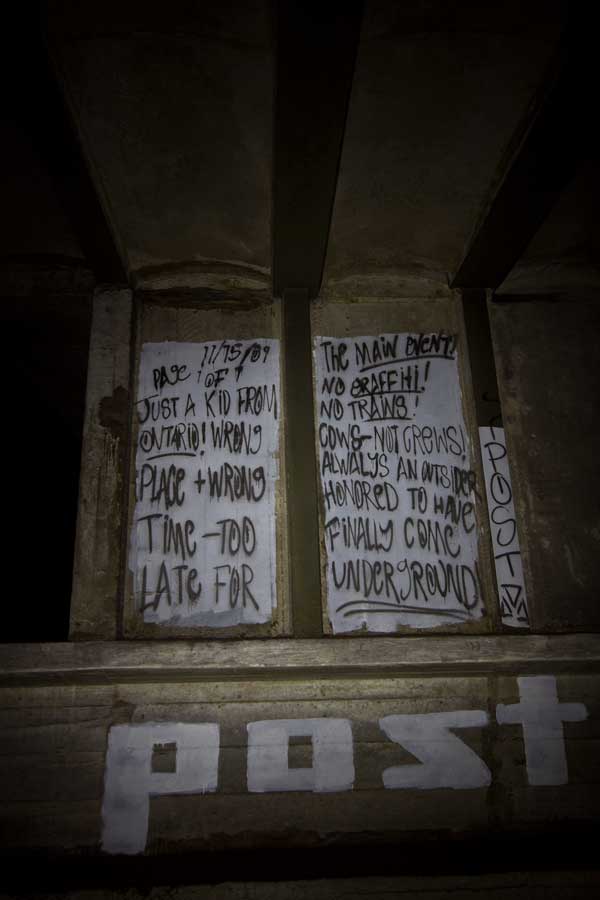 11/15/09
PAGE 1 OF 1
JUST A KID FROM
ONTARIO! WRONG
PLACE + WRONG
TIME - TOO
LATE FOR
THE MAIN EVENT!
NO GRAFFITI!
NO TRAINS!
COWS - NOT CREWS!
ALWALYS AN OUTSIDER
HONORED TO HAVE
FINALLY COME
UNDERGROUND!
POST
post